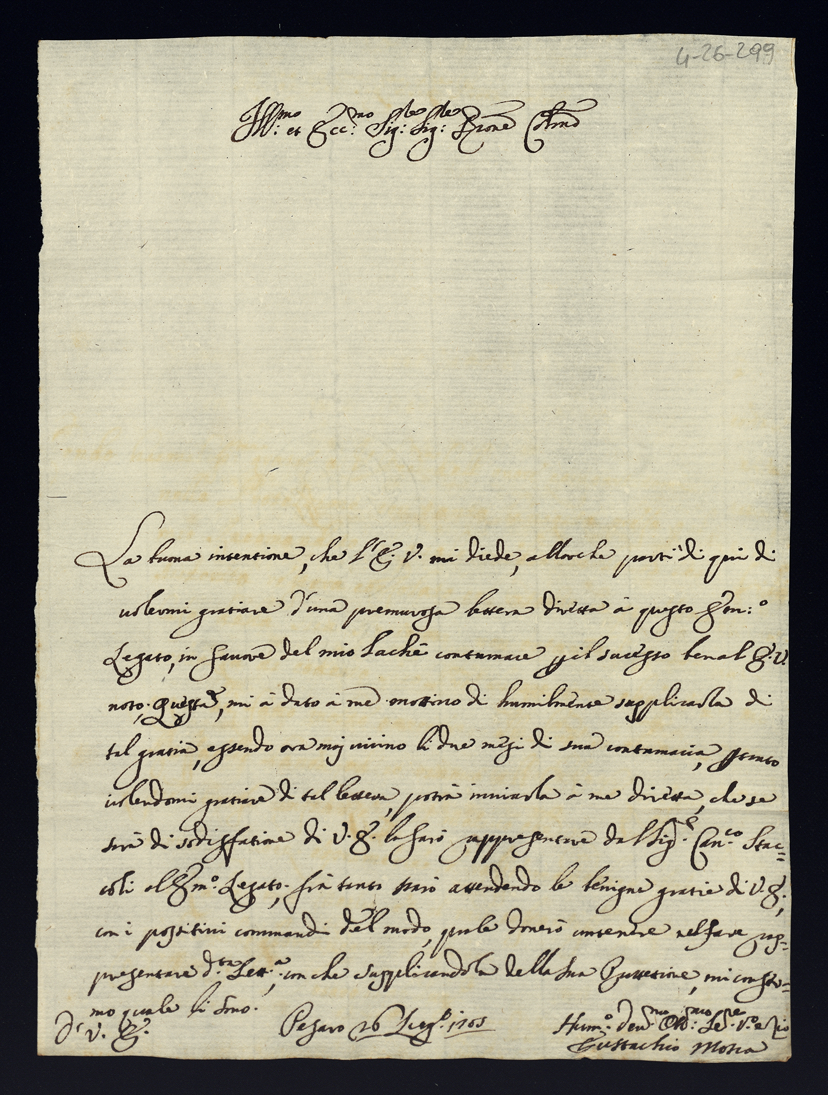 4-26-299
Ill:mo et Ecc:mo Sig:re Sig:re Prone Colmo
La buona intentione, che l'E. V. mi diede, allorche partì di qui di
volermi gratiare d'una premurosa lettera diretta à questo Em:o
Legato, in favore del mio Lachè contumace p il sucesso ben al E. V.
noto. Questa, mi à dato à me mottivo di humilmente supplicarla di
tal gratia, essendo ora mai vicino li due mesi di sua contumacia, ptanto
volendomi gratiare di tal lettera, potrà inviarla à me diretta, che se
sarà di sodisfatione di V. E. la farò rappresentare dal Sig.r Can.co Stac=
coli al Em.o Legato. frà tanto starò attendendo le benigne gratie di V. E.,
con i possitivi commandi del modo, quale doverò contenere nel fare rap=
presentare d.ta Lett.a, con che supplicandola della sua Protettione, mi confir=
mo quale li sono.
Di V. E.
Pesaro 26 1705
Hum.o Dev.mo Obb:mo Se.re V.o e Zio
Eustachio Mosca